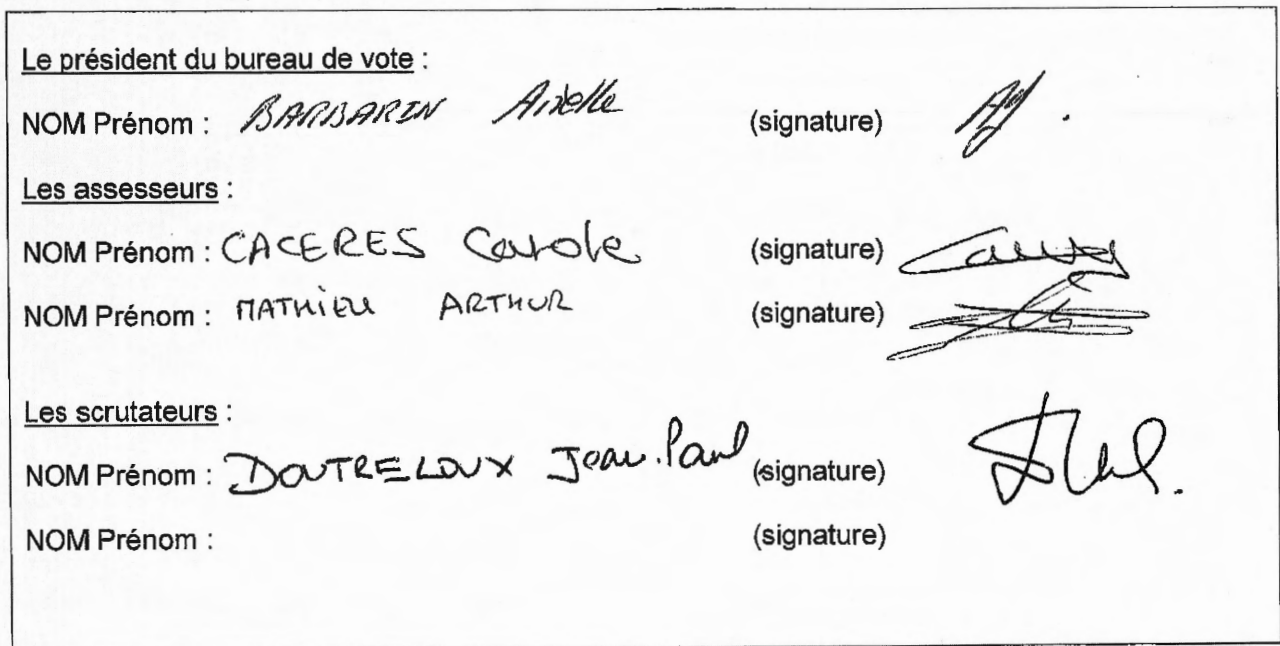 Le président du bureau de vote :
NOM Prénom : BARBARIN (signature)
Les assesseurs :
NOM Prénom : CACERES Carole (signature)
NOM Prénom : MATHIEU ARTHUR (signature)
Les scrutateurs :
NOM Prénom : DOUTRELOUX Jean-Paul (signature)
NOM Prénom : (signature)